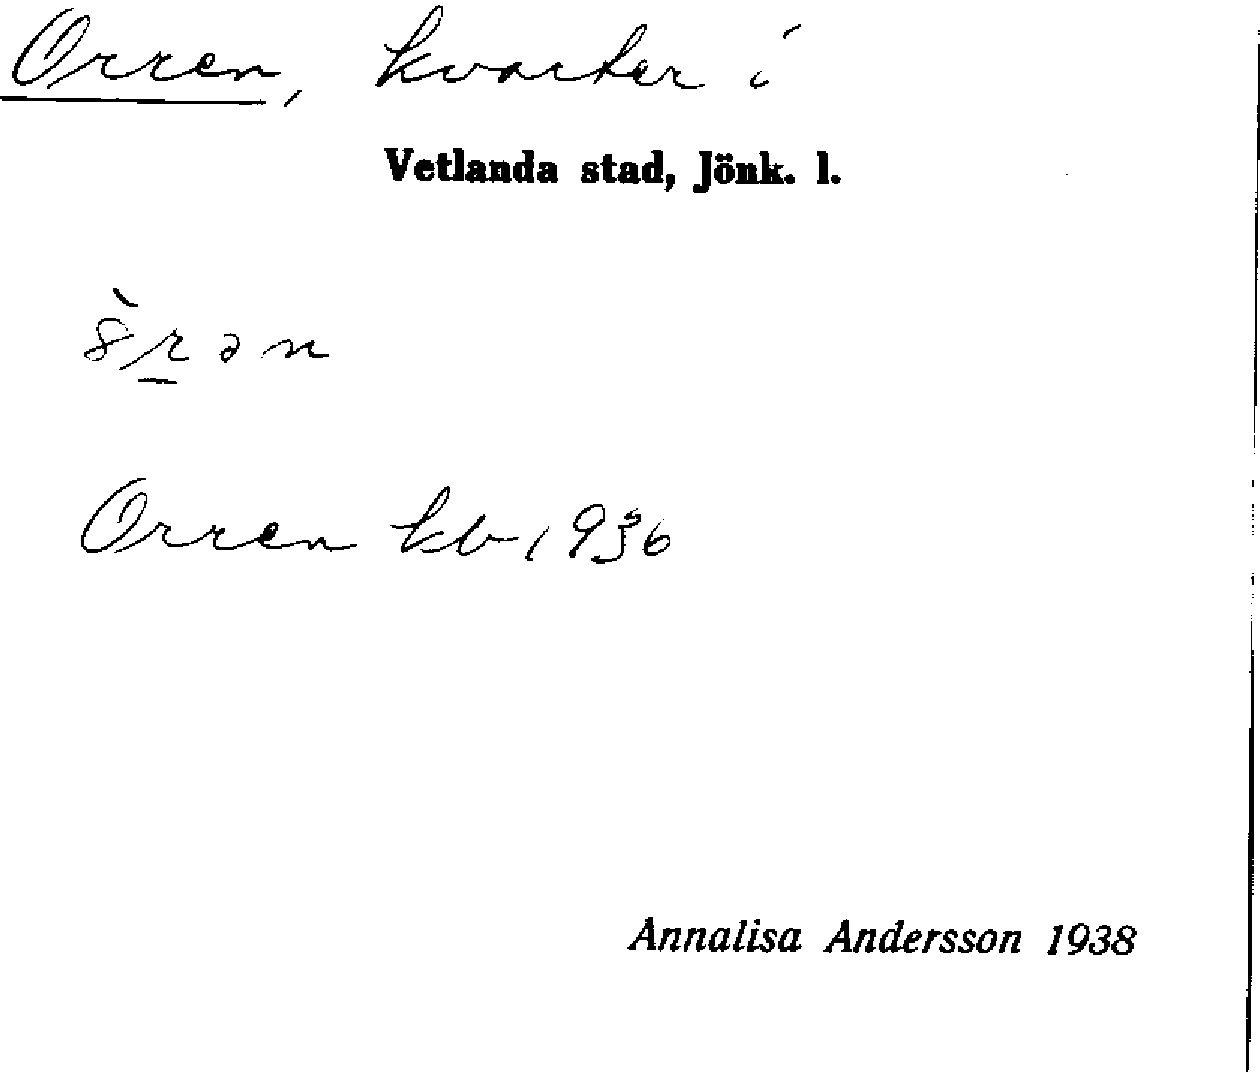 Orren, kvarter i
Vetlanda stad, Jönk. l.
Orren kb 1936
Annalisa Andersson 1938